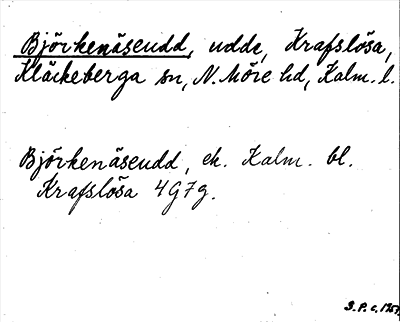 Björkenäsudd, udde, Krafslösa,
Kläckeberga sn, N. Möre hd, Kalm. l.
Björkenäsudd, ek. Kalm. bl.
Krafslösa 4G7g.
S.P. c.